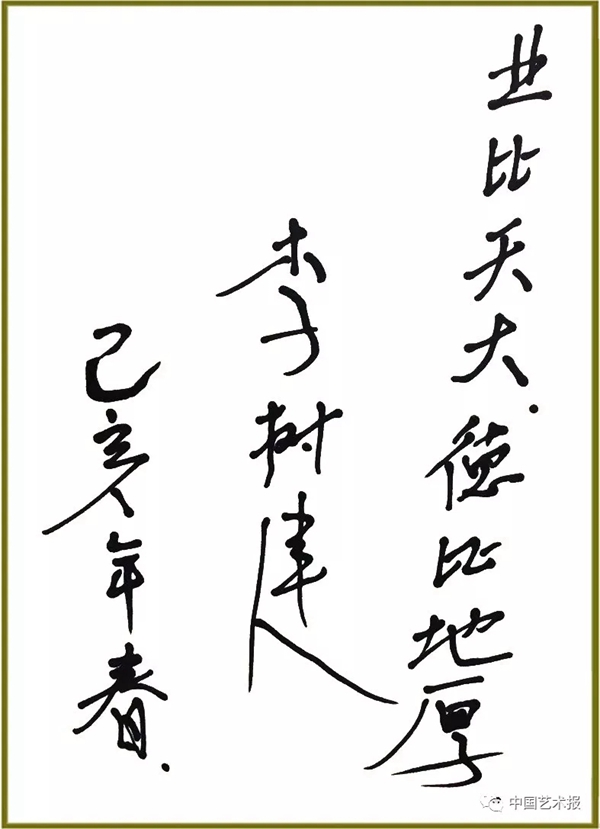 业比天大.德比地厚
李树建
己亥年春.
中国艺术报